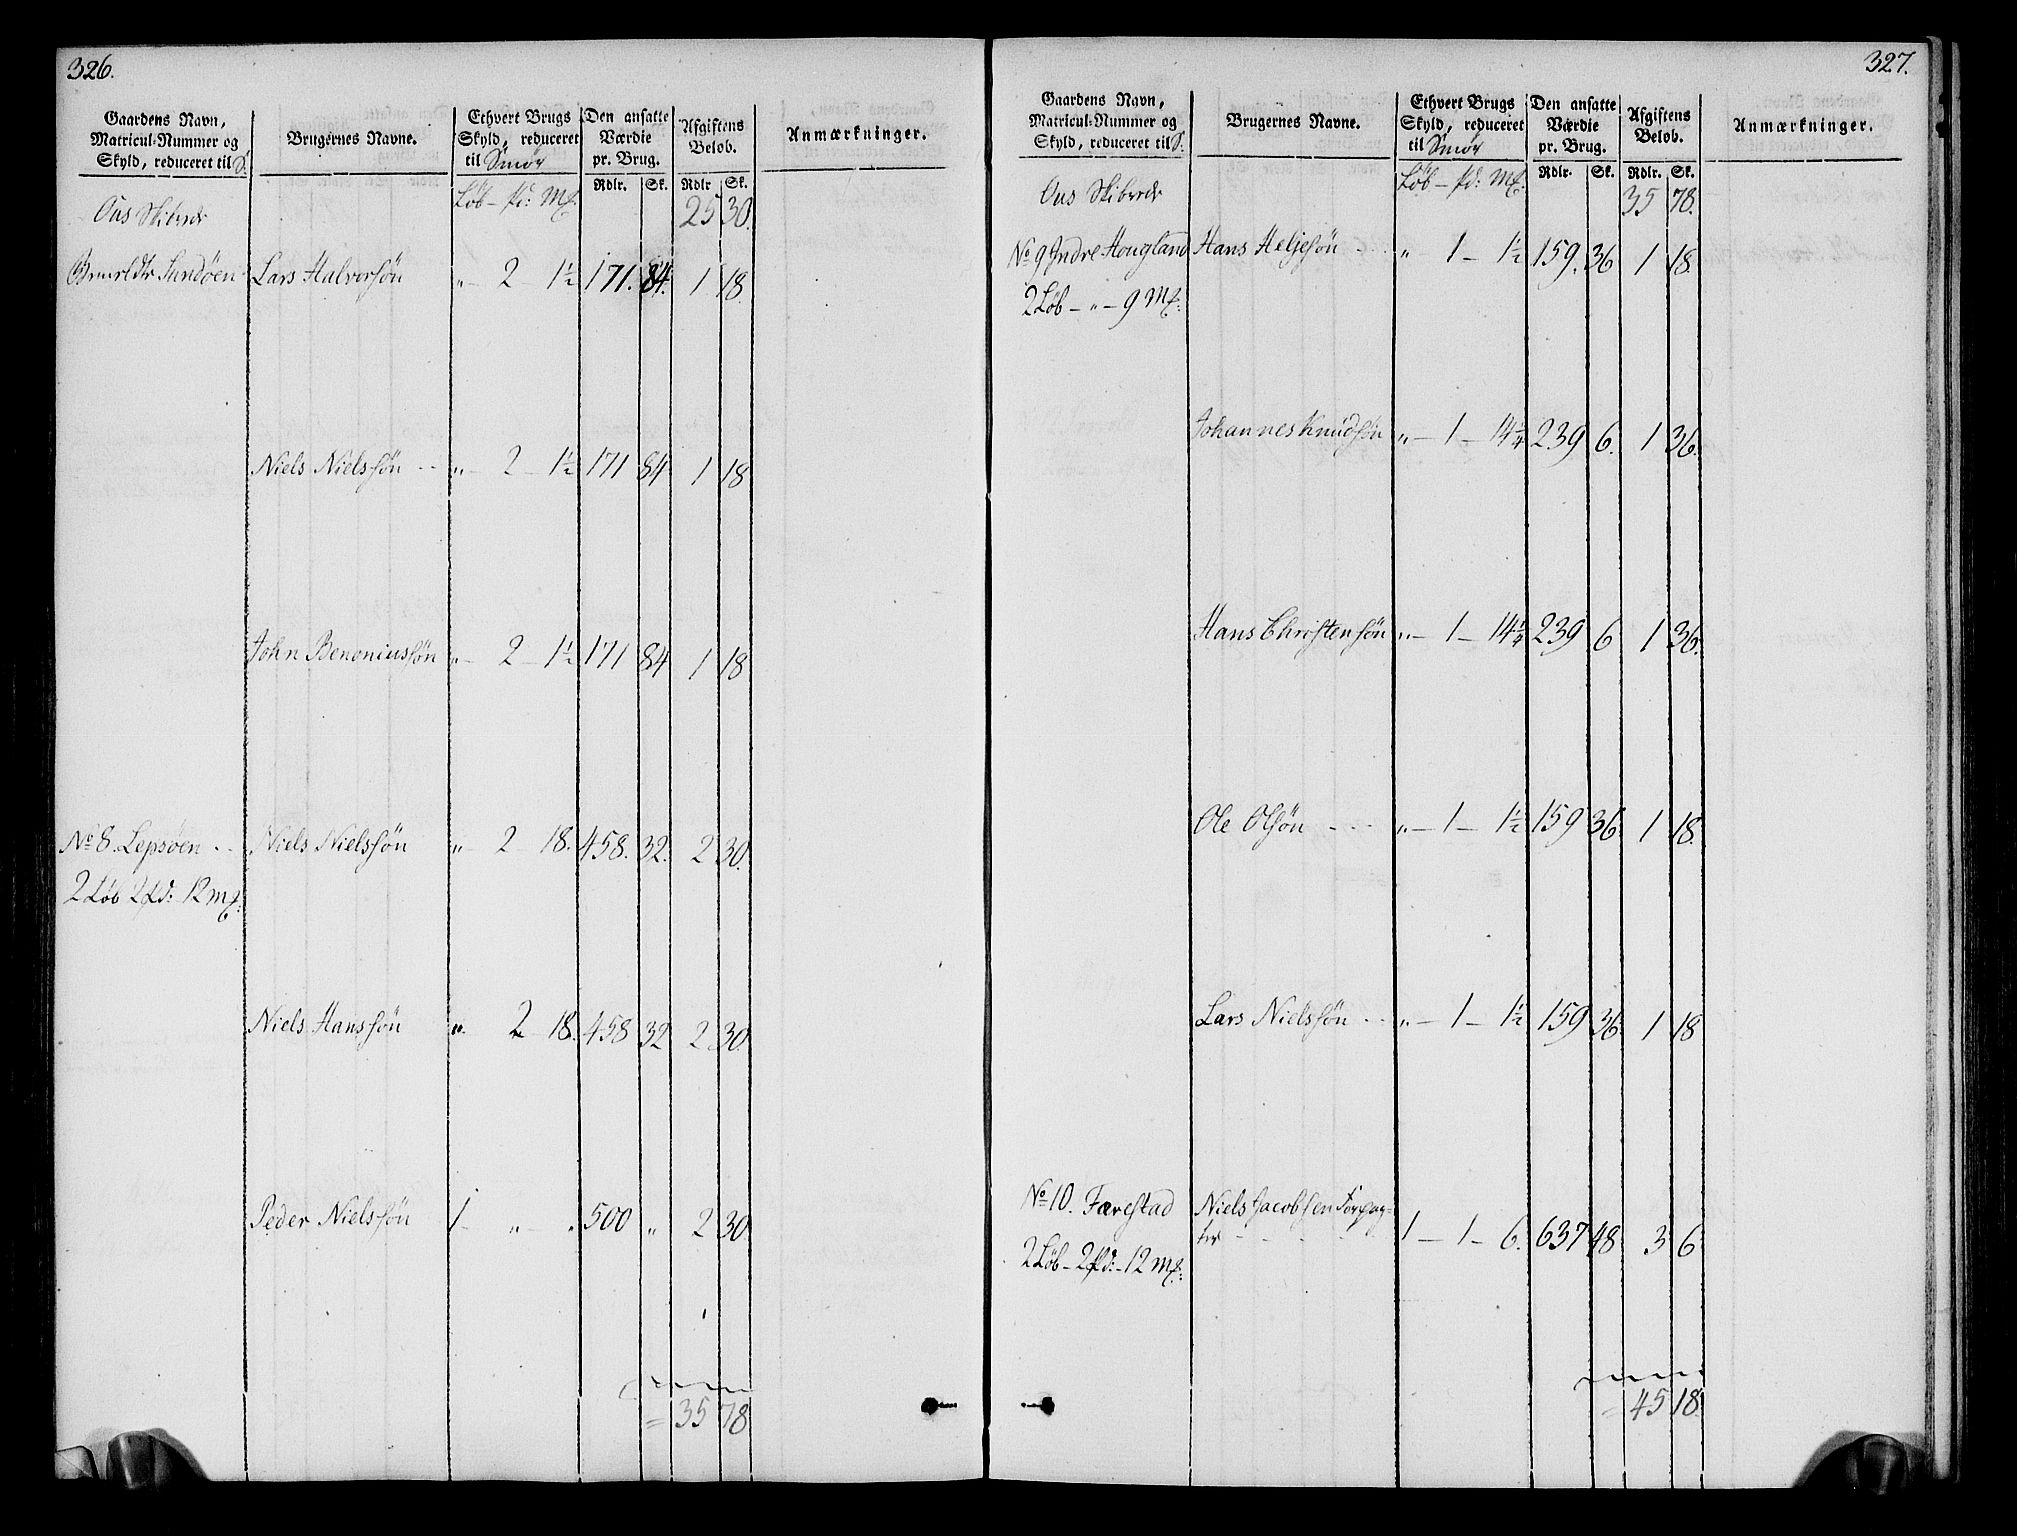 326.
Gaardens Navn, Matricul-Nummer og Skyld, reduceret til S.
Brugernes Navne.
Ethvert Brugs Skyld, reduceret til Smør
Den ansatte Værdie pr. Brug.
Afgiftens Beløb.
Anmærkninger.
Rdlr. Sk. Rdlr Sk.
Løb - pd: Mk:
Ous Skibrede 25 30.
Sundøen Lars Halvorsøn " 2 - 1½ 171. 84. 1 18.
Niels Nielssøn " - 2 - 1½ 171 84 1 18
John Benoniussøn " - 2 - 1½ 171 84 1 18
No 8. Lepsøen Niels Nielssøn " - 2 - 18. 458. 32. 2 30.
2 Løb 2 pd: 12 Mk:
Niels Hanssøn " 2 - 18. 458 32 2 30.
Peder Nielssøn 1 - " - " 500 " 2 30
= 35 78
327.
Gaardens Navn, Matricul-Nummer og Skyld, reduceret til S.
Brugernes Navne.
Ethvert Brugs Skyld, reduceret til Smør
Den ansatte Værdie pr. Brug.
Afgiftens Beløb.
Anmærkninger.
Rdlr. Sk. Rdlr. Sk.
Løb - pd: Mk:
Ous Skibrede 35 78.
No 9 Indre Hougland Hans Heljesøn " 1 - 1½ 159. 36 1 18.
2 Løb - " - 9 Mk:
Johannes Knudsøn " - 1 - 14¼ 239 6. 1 36.
Hans Christensøn " - 1 - 14¼ 239 6 1 36.
Ole Olsøn " - 1 - 1½ 159 36 1 18.
Lars Nielssøn " - 1 - 1½ 159 36 1 18
No 10. Færestad Niels Jacobsen Forpag=
ter 1 - 1 - 6. 637 48 3 6
2 Løb - 2 pd: - 12 Mk:
= 45 18.